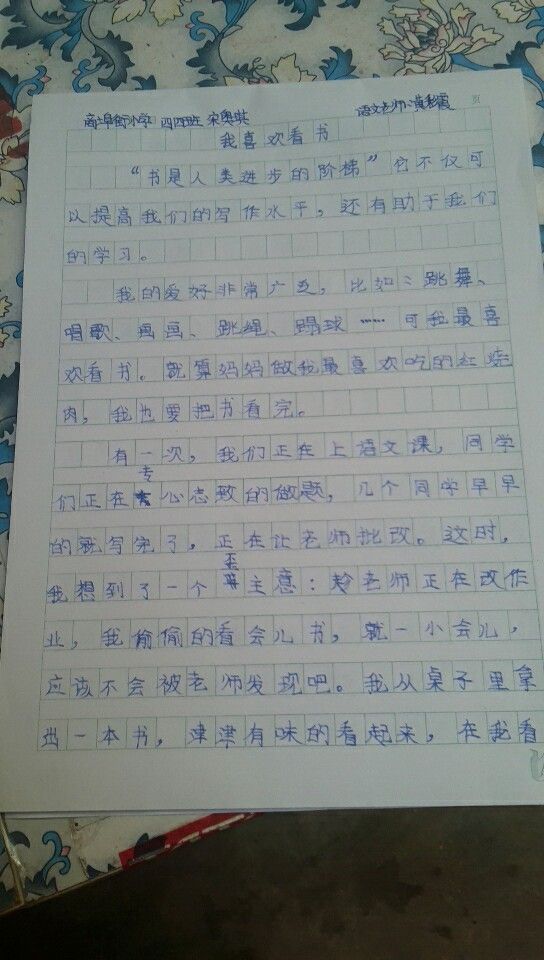 小学 四四班 宋奥琪 语文老师:黄彩霞
我喜欢看书
“书是人类进步的阶梯”它不仅可
以提高我们的写作水平，还有助于我们
的学习。
我的爱好非常广泛，比如：跳舞、
唱歌、画画、跳绳、踢球……可我最喜
欢看书。就算妈妈做我最喜欢吃的红烧
肉，我也要把书看完。
有一次，我们正在上语文课，同学
们正在专心志致的做题，几个同学早早
的就写完了，正在让老师批改。这时，
我想到了一个歪主意：趁老师正在改作
业，我偷偷的看会儿书，就一小会儿，
应该不会被老师发现吧。我从桌子里拿
出一本书，津津有味的看起来，在我看